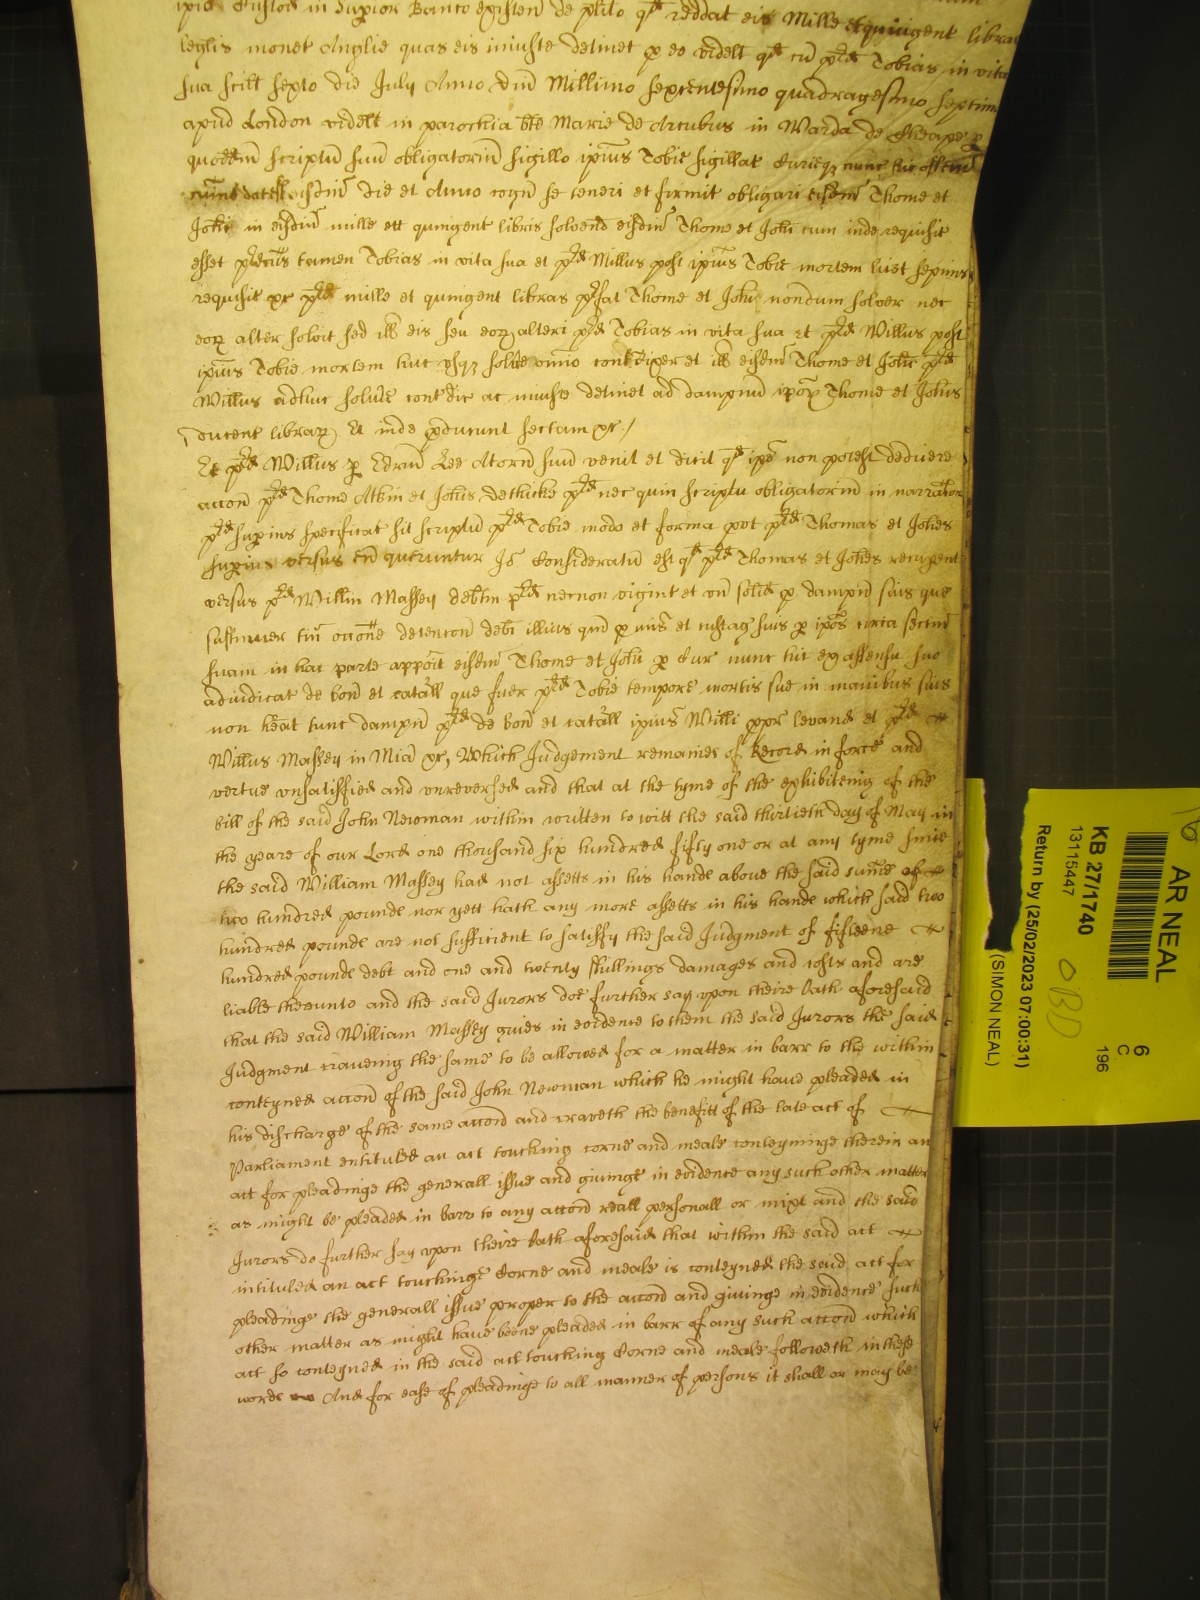 ipiu Custod in Superior Banco existen de plito qd reddat eis Mille et quingent libras
leglis monet Anglie quas eis iniuste detinet p eo videlt qd cu pred Tobias in vita
sua scilt sexto die July Anno dni Millimo sexcentesimo quadragesimo septim
apud London videlt in parochia bte Marie de Arcubus in Warda de Cheape p
quoddm scriptu suu obligatoriu sigillo ipius Tobie sigillat Curieqz nunc hic ostens
cuius dat est eisdm die et Anno cogn se teneri et firmit obligari eisdm Thome et
Johi in eisdm mille et quingent libris solvend eisdm Thome et Johi cum inde requisit
esset pred tamen Tobias in vita sua et pred Willus post ipius Tobie mortem licet sepius
requisit &c pred mille et quingent libras prfat Thome et Johi nondum solver nec
eorz alter solvit sed ill eis seu eorz alteri pred Tobias in vita sua et pred Willus post
ipius Tobie mortem huc usqz solvere omio contradixer et ill eisdm Thome et Johi pred
Willus adhuc solvere contdic ac iniuste detinet ad dampnu ipor Thome et Johis
ducent librarz Et inde producunt sectam &c /
Et pred Willus p Edrum Lee Attorn suu venit et dicit qd ipe non potest dedicere
accon pred Thome Atkin et Johis Dethicke pred nec quin scriptu obligatoriu in narracon
pred superius specificat sit scriptu pred Tobie modo et forma prout pred Thomas et Johes
superius versus eu queruntur Io Consideratu est qd pred Thomas et Johes recuperent
versus pred Willm Massey debtm pred necnon vigint et un solid p dampn suis que
sustinuer tm occone detencon debi illius qm p mis et custag suis p ipos circa sectam
suam in hac parte apposit eisdm Thome et Johi p Cur nunc hic ex assensu suo
adiudicat de bon et catall que fuer pred Tobie tempore mortis sue in manibus suis
non heat tunc dampn pred de bon et catall ipius Willi ppr levand et pred
Willus Massey in Mia &c, Which Judgement remaines of Record in force and
vertue unsatisfied and unreversed and that at the tyme of the exhibiteing of the
bill of the said John Newman within written to witt the said thirtieth day of May in
the yeare of our Lord one thousand six hundred fifty one or at any tyme since
the said William Massey had not assetts in his hande above the said sume of
two hundred pounde nor yett hath any more assetts in his hande which said two
hundred pounde are not sufficient to satisfy the said Judgment of fifteene
hundred pounde debt and one and twenty shillings damages and costs and are
liable thereunto and the said Jurors doe further say upon theire oath aforesaid
that the said William Massey gives in evidence to them the said Jurors the said
Judgment craveing the same to be allowed for a matter in barr to the within
conteyned accon of the said John Newman which he might have pleaded in
his discharge of the same accon and craveth the benefitt of the late act of
Parliament entituled an act touching corne and meale conteyninge therein an
act for pleadinge the generall issue and givinge in evidence any such other matter
as might be pleaded in barr to any accon reall personall or mixt and the said
Jurors do further say upon theire oath aforesaid that within the said act
intituled an act touchinge Corne and meale is conteyned the said act for
pleadinge the generall issue proper to the accon and givinge in evidence such
other matter as might have beene pleaded in barr of any such accon which
act so conteyned in the said act touching Corne and meale followeth in these
words And for ease of pleadinge to all manner of persons it shall or may be
AR NEAL
6
C
196
KB 27/1740
13115447
OBD
Return by (25/02/2023 07:00:31)
(SIMON NEAL)